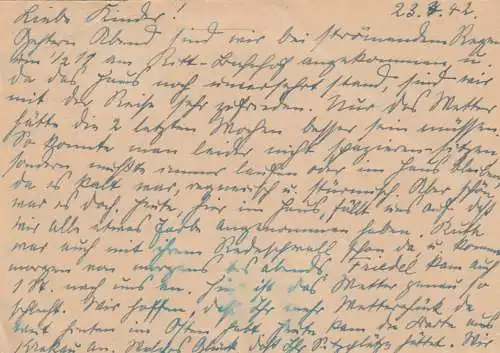 Liebe Kinder! 23.8.42.
Gestern Abend sind wir bei strömendem Regen
um 1/2 19 am Bahnhof angekommen, u.
da das Haus noch unversehrt stand, sind wir
mit der Reise sehr zufrieden. Nur das Wetter
hätte die 2 letzten Wochen besser sein müssen.
So konnte man leider nicht spazieren-sitzen
sondern mußte immer laufen oder im Haus bleiben
da es kalt war, regnerisch u. stürmisch. Aber schön
war es doch. Heute, hier im Haus, fällt uns auf daß
wir alle etwas Farbe angenommen haben. Ruth
war auch mit ihrem Redeschwall schon da u. kommt
morgen von morgens bis abends. Friedel kam auf
1 St. nach uns an. Hier ist das Wetter genau so
schlecht. Wir hoffen, daß Ihr mehr Wetterglück da
weit hinten im Osten habt. Heute kam die Karte aus
Krakau an. Welches Glück daß Ihr Sitzplätze hattet. Wir